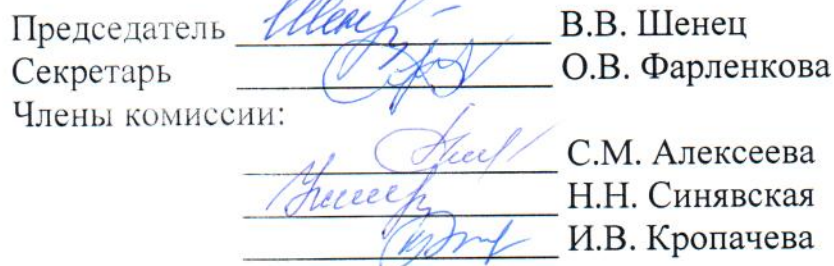 Председатель В.В. Шенец
Секретарь О.В. Фарленкова
Члены комиссии:
С.М. Алексеева
Н.Н. Синявская
И.В. Кропачева